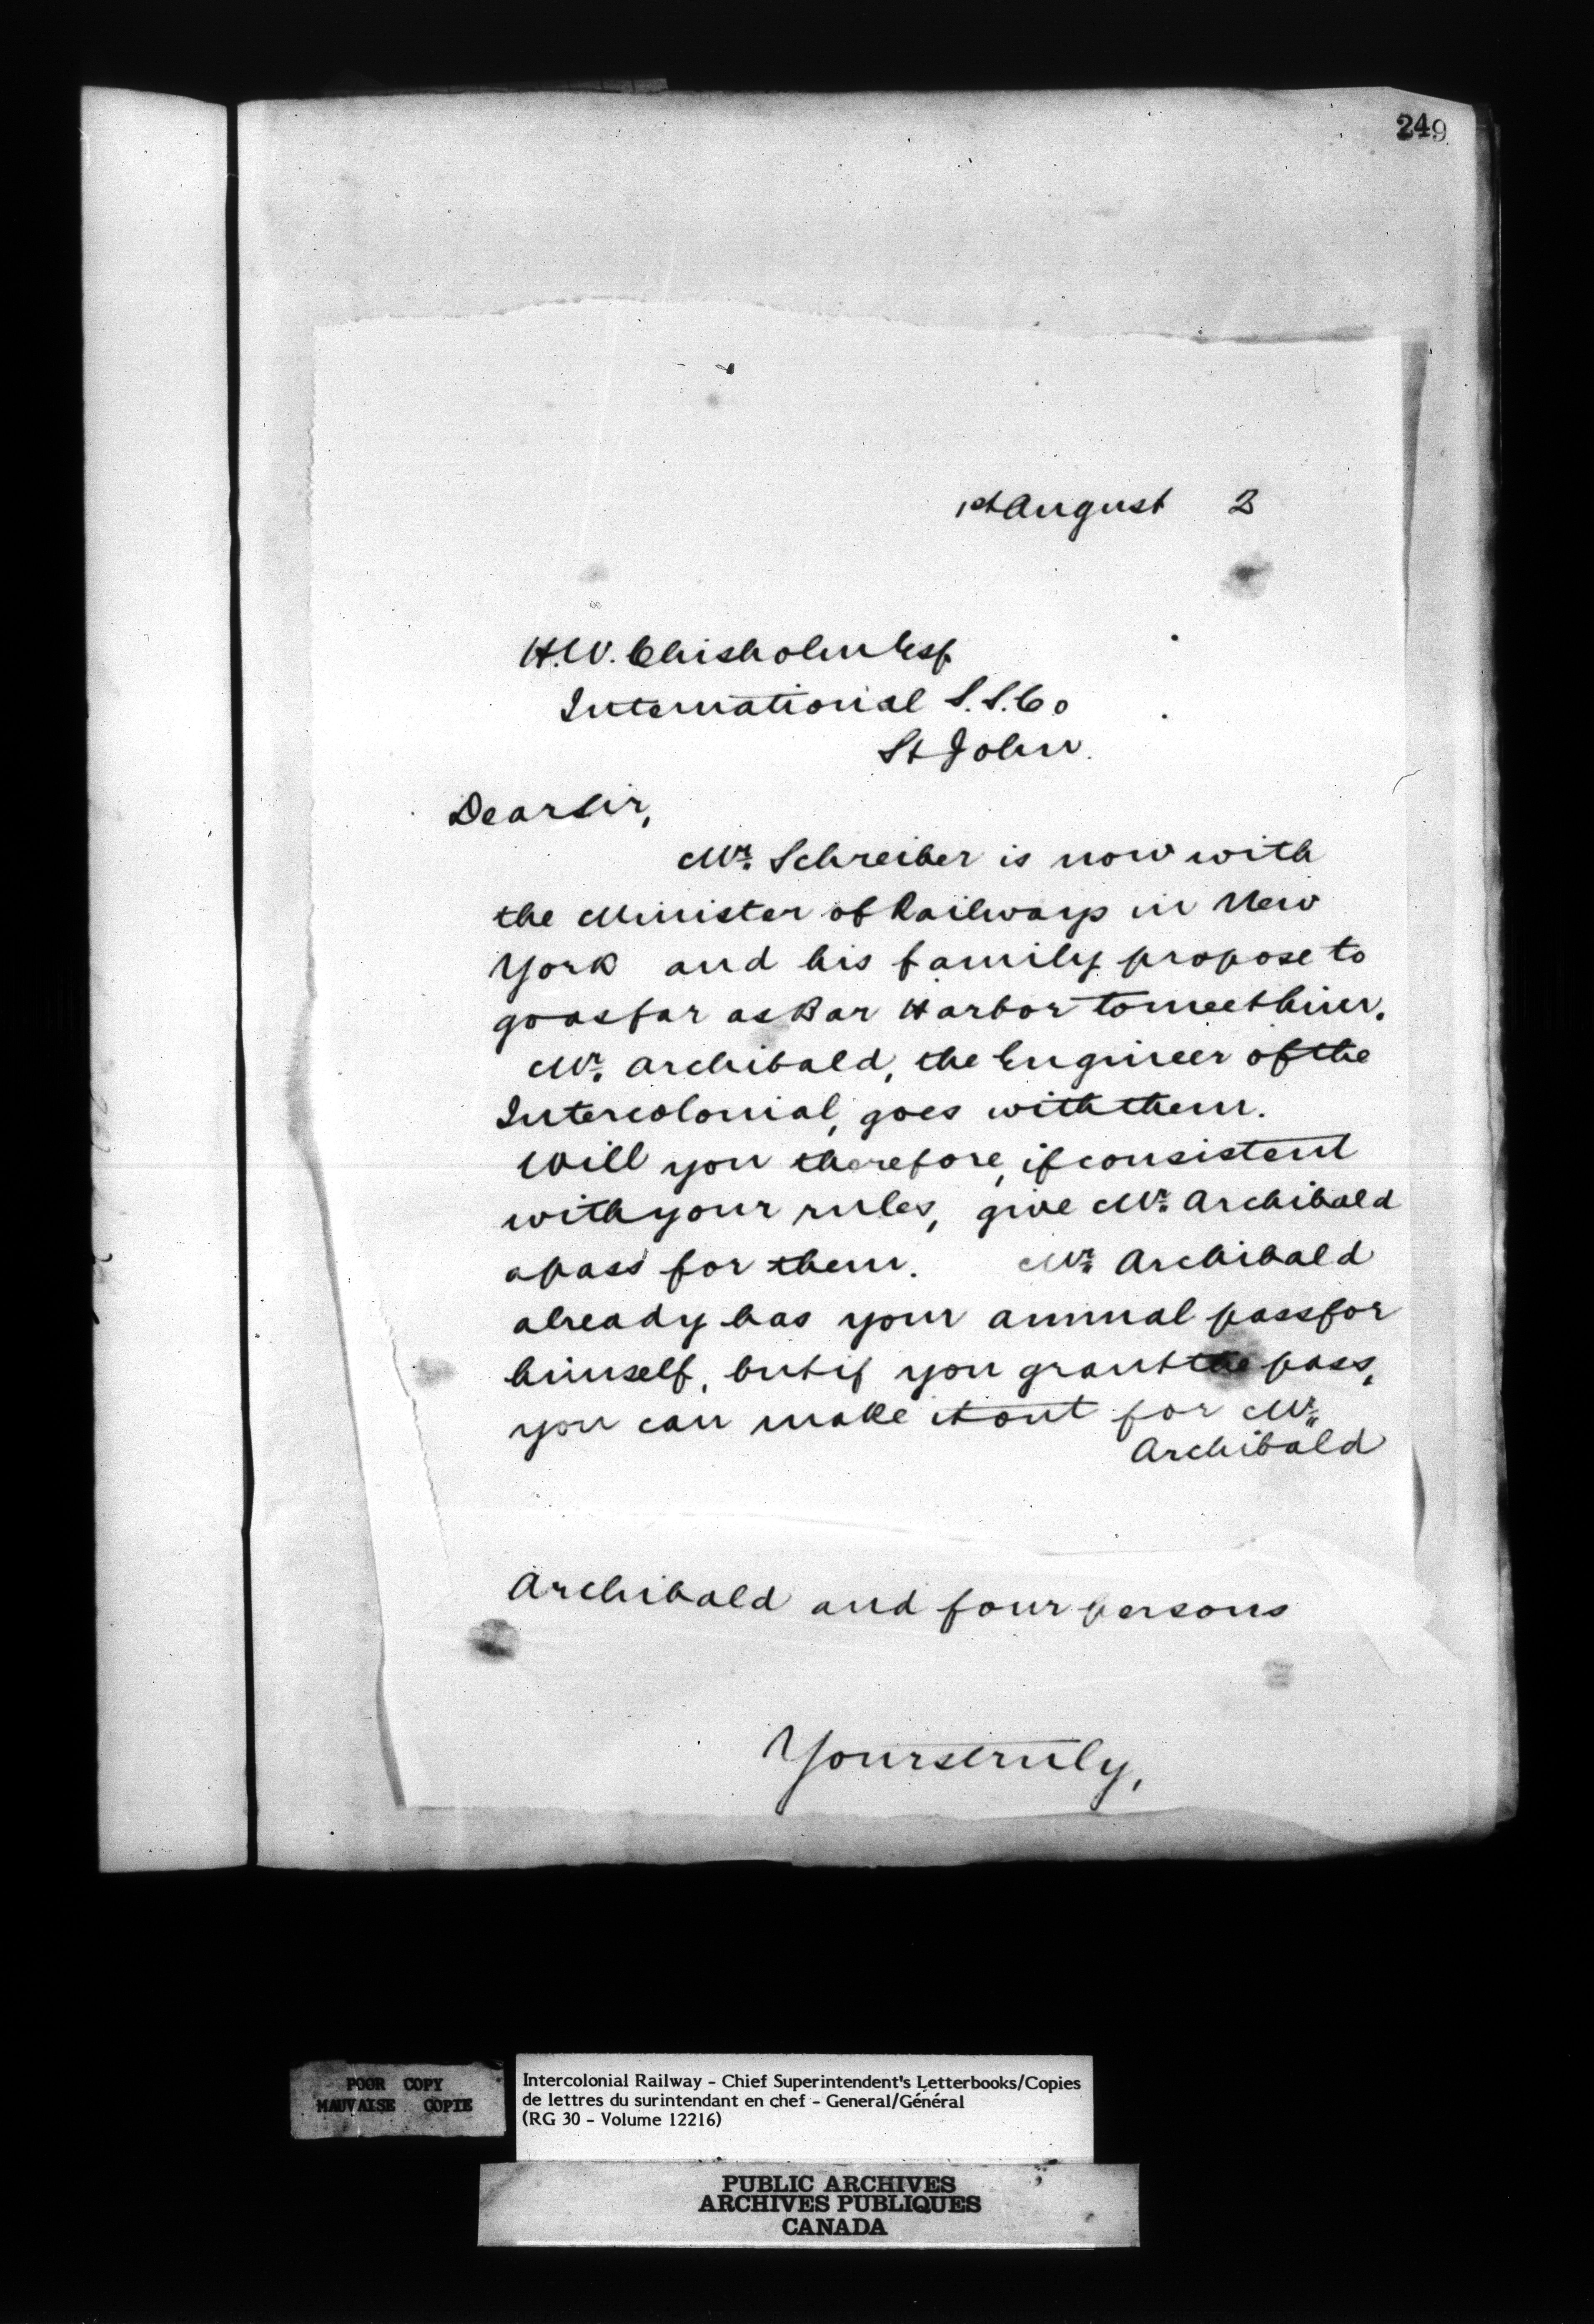 249
1st August 2
H.W. Chisholm Esq
International S.S. Co
St John.
Dear Sir,
Mr. Schreiber is now with
the Minister of Railways in New
York and his family propose to
go as far as Bar Harbor to meet him.
Mr. Archibald, the Engineer of the
Intercolonial, goes with them.
Will you therefore, if consistent
with your rules, give Mr. Archibald
a pass for them. Mr. Archibald
already has your annual pass for
himself, but if you grant the pass,
you can make it out for Mr.
Archibald
Archibald and four persons
Yours truly,
POOR COPY
MAUVAISE COPIE
Intercolonial Railway - Chief Superintendent's Letterbooks/Copies
de lettres du surintendant en chef - General/Général
(RG 30 - Volume 12216)
PUBLIC ARCHIVES
ARCHIVES PUBLIQUES
CANADA